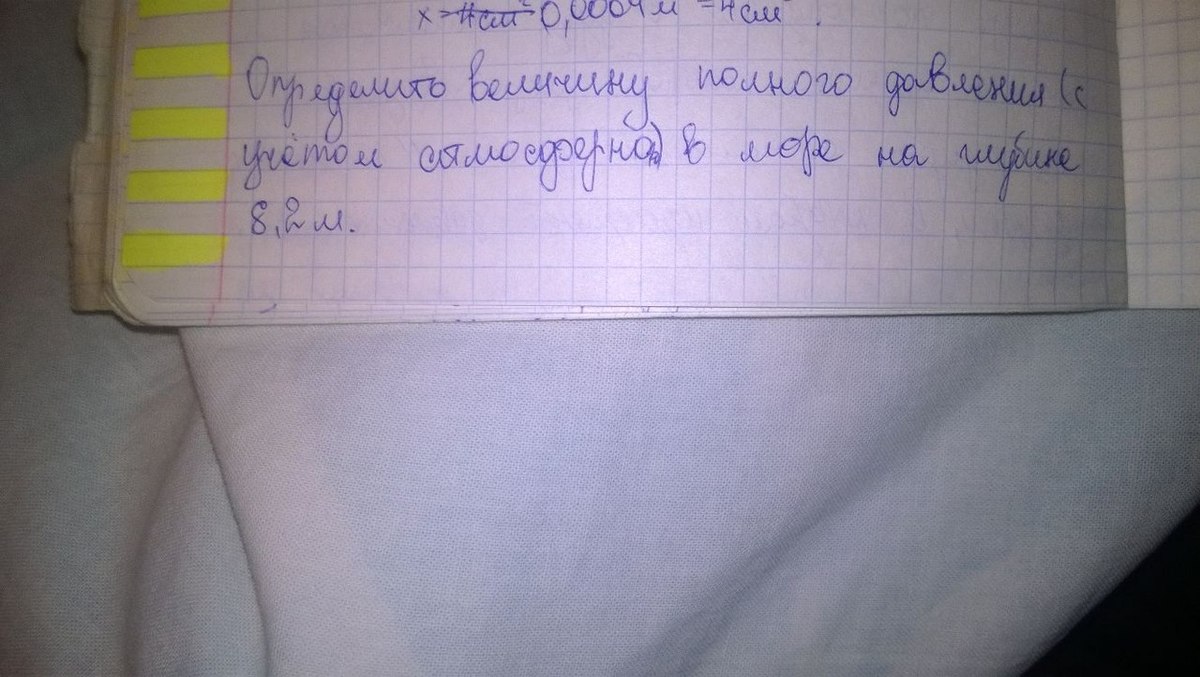 x = 4см² 0,0004 м = 4 см.
Определить величину полного давления (с
учётом атмосферно) в море на глубине
8,2 м.